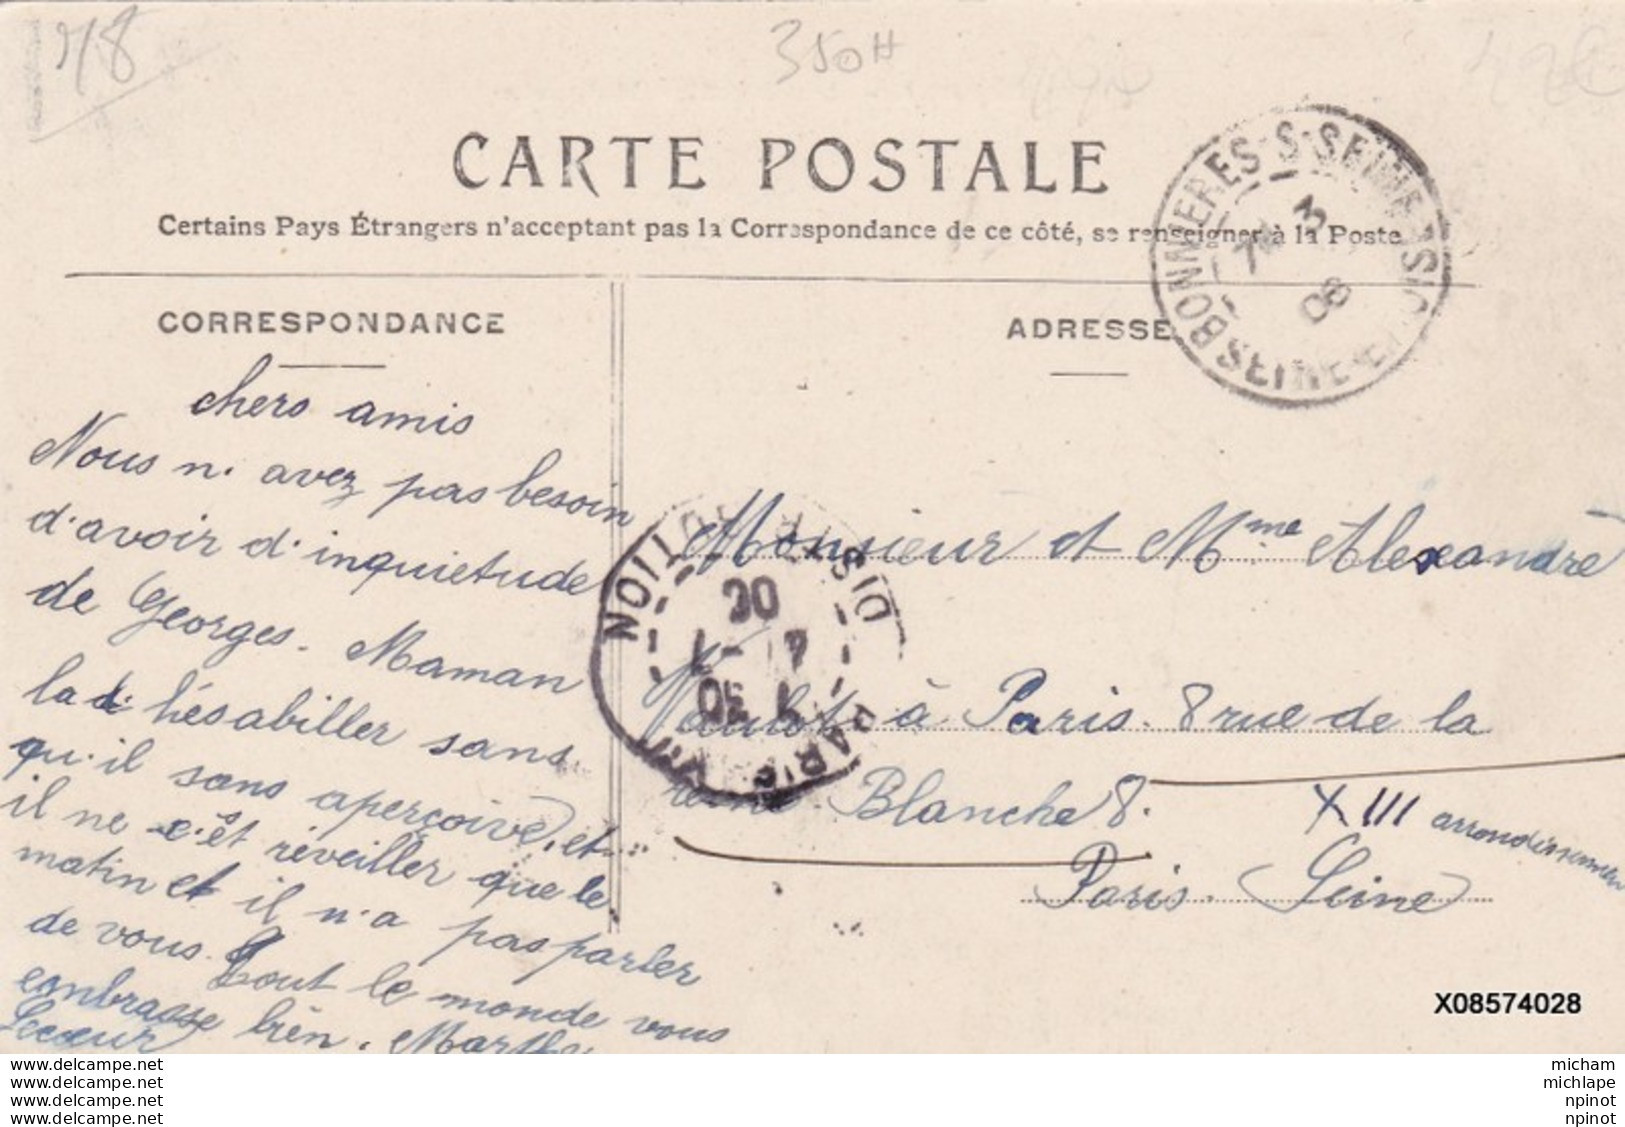 118
350H
CARTE POSTALE
Certains Pays Étrangers n'acceptant pas la Correspondance de ce côté, se renseigner à la Poste
BONNIERES-S-SEINE
SEINE-ET-OISE
3
08
CORRESPONDANCE
ADRESSE
chers amis
Nous n. avez pas besoin
d'avoir d'inquietude
de Georges. Maman
la d. hésabiller sans
qu.il sans aperçoive, et
il ne c.êt réveiller que le
matin et il n'a pas parler
de vous. Tout le monde vous
embrasse bien. Marthe
Lecœur
Monsieur et Mme Alexandre
à Paris. 8 rue de la
reine Blanche 8.
XIII arrondissement
Paris. Seine
DISTRIBUTION
PARIS
X08574028
www.delcampe.net
www.delcampe.net
www.delcampe.net
www.delcampe.net
micham
michlape
npinot
npinot